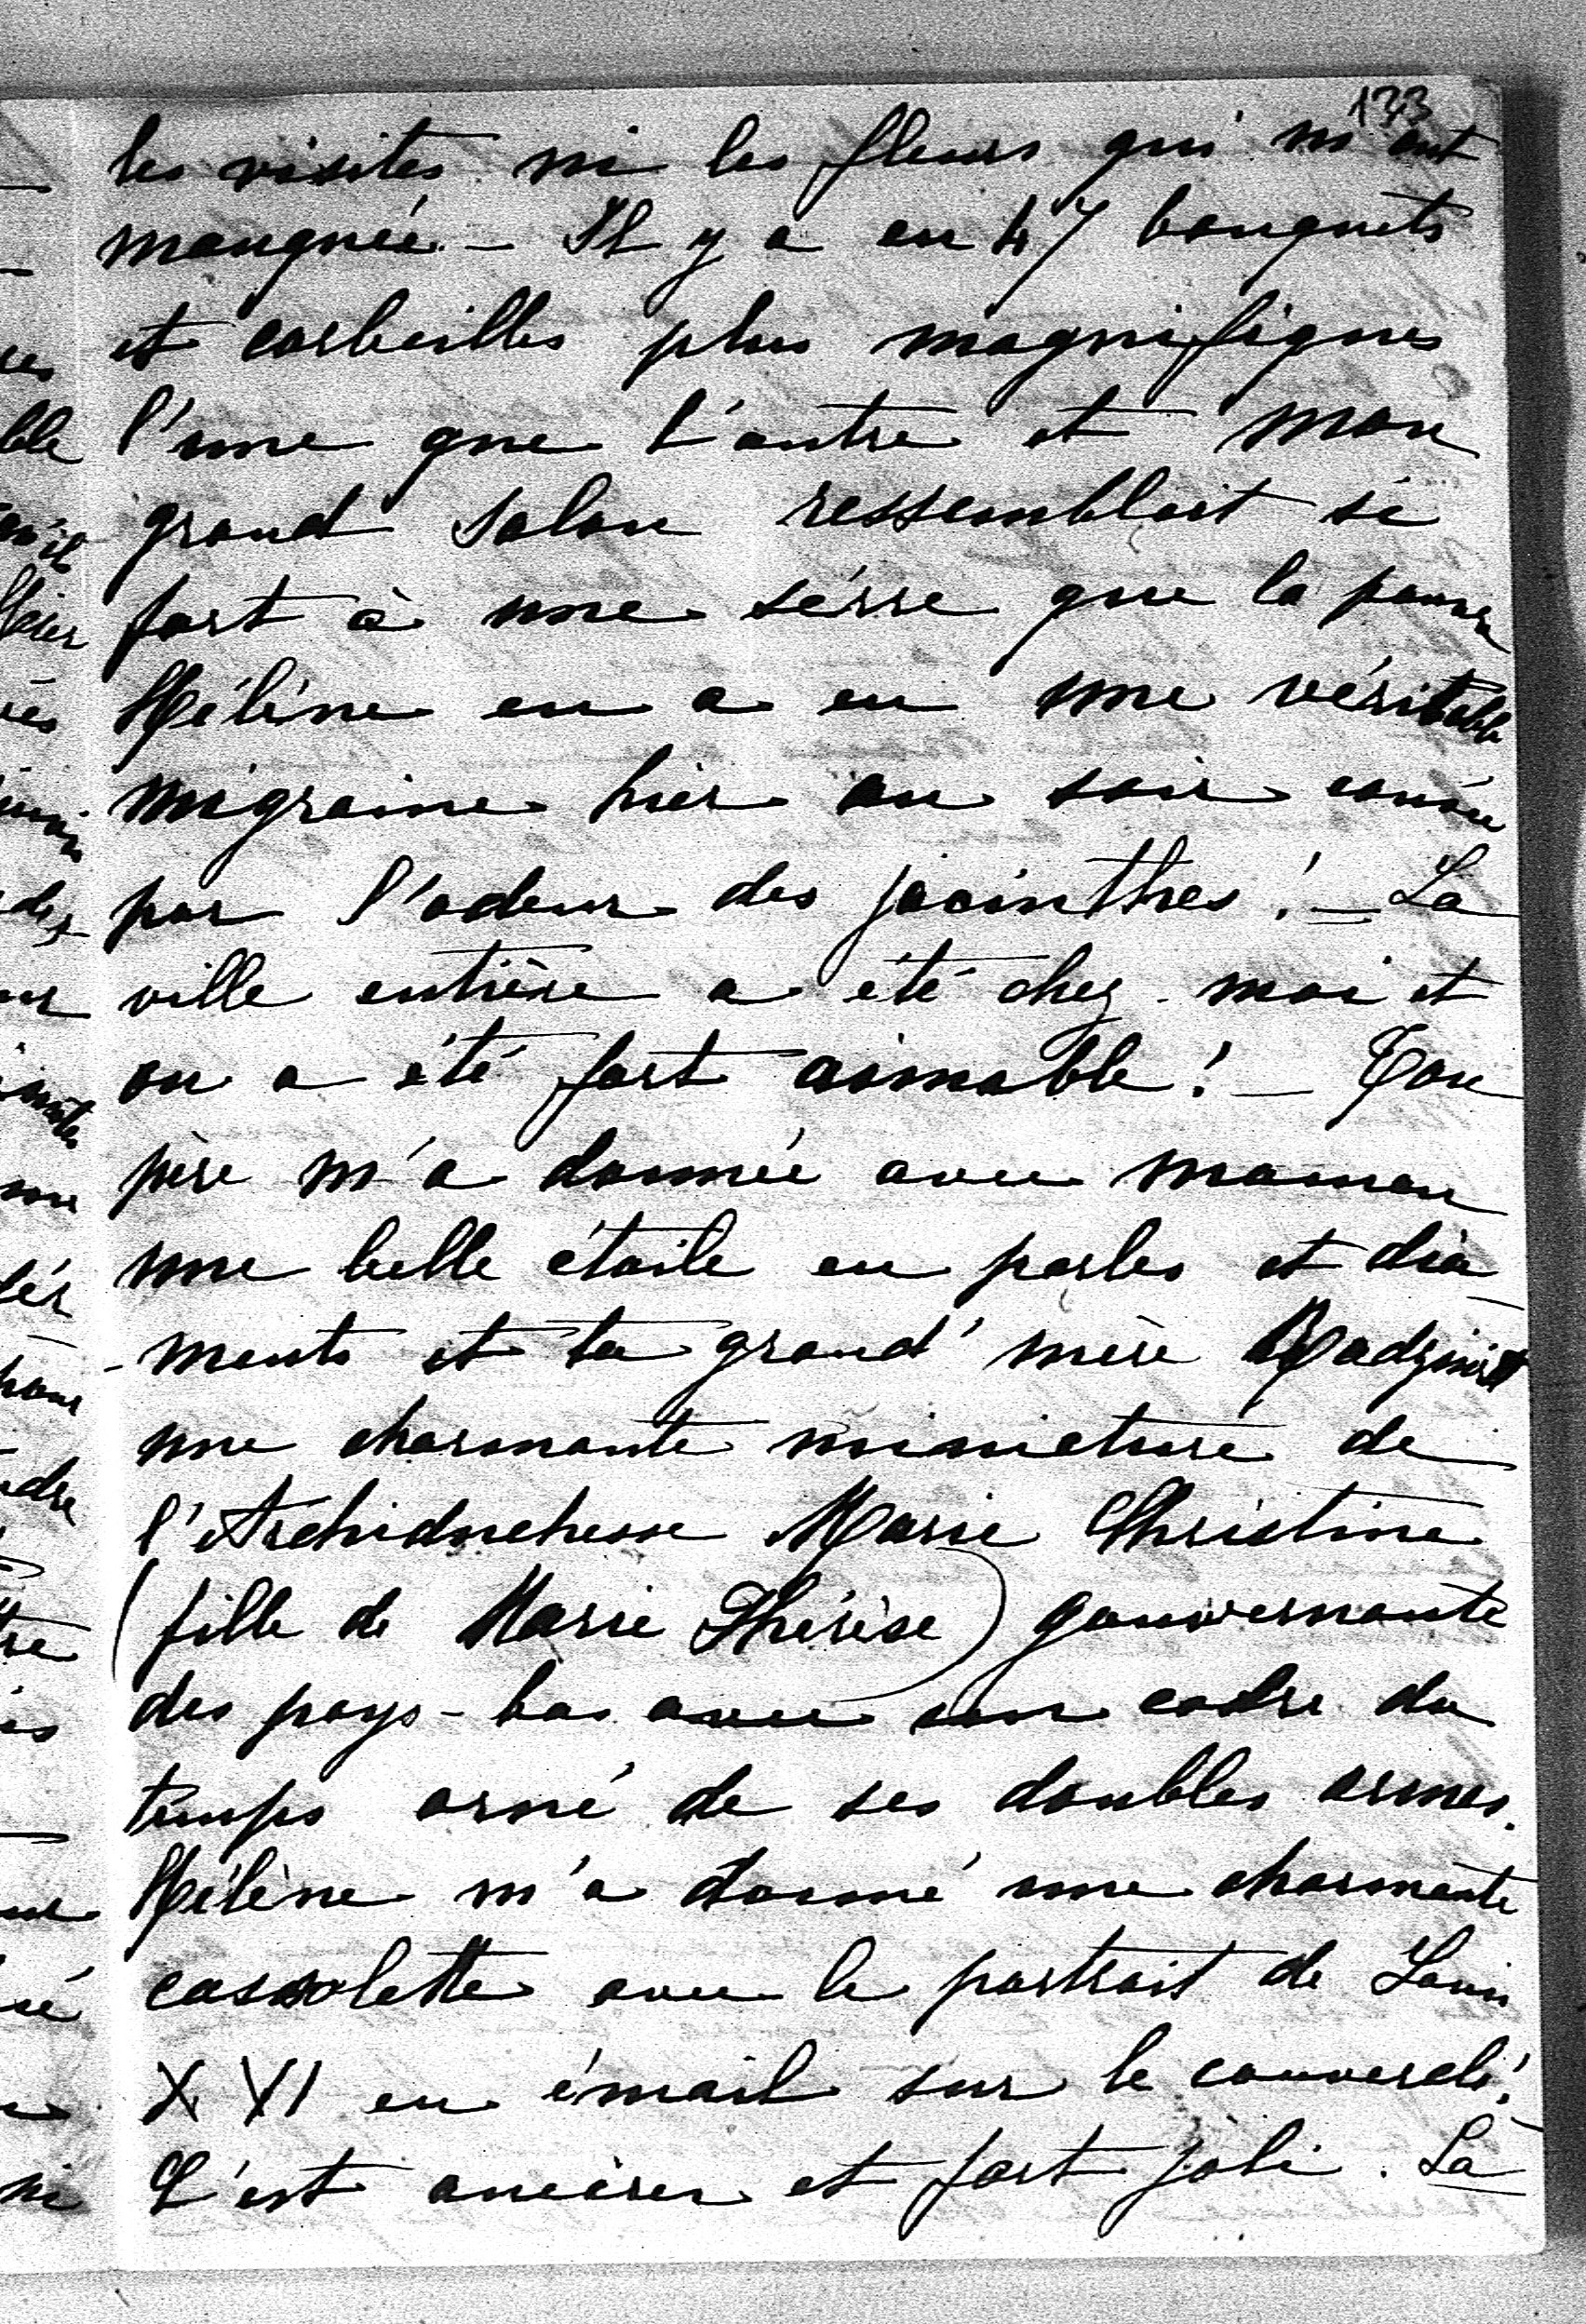 133
les visites ni les fleurs qui m'ont
manquée. – Il y a eu 47 bouquets
et corbeilles plus magnifiques
l'une que l'autre et mon
grand salon ressemblait si
fort à une sérre que la pauvre
Hélène en a eu une véritable
migraine hier au soir causée
par l'odeur des jacinthes! – La
ville entière a été chez moi et
on a été fort aimable! – Ton
père m'a donnée avec maman
une belle étoile en perles et dia
-mants et ta grand'mère Radziwill
une charmante miniature de
l'Archiduchesse Marie Christine
(fille de Marie Thérèse) gouvernante
des pays-bas avec son cadre du
temps orné de ses doubles armes.
Hélène m'a donné une charmante
cassolette avec le portrait de Louis
XVI en émail sur le couvercle!
C'est ancien et fort joli. La